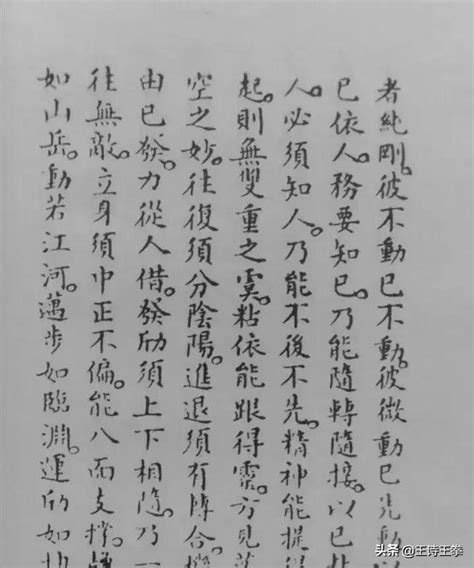 者純剛。彼不動己不動。彼微動己先動。以
己依人。務要知己。乃能隨轉隨接。以己粘
人。必須知人。乃能不後不先。精神能提得
起。則無雙重之虞。粘依能跟得靈。方見落
空之妙。往復須分陰陽。進退須有轉合。機
由己發。力從人借。發劲須上下相隨。乃一
往無敵。立身須中正不偏。能八面支撐。靜
如山岳。動若江河。邁步如臨淵。運劲如抽
头条 @王詩王拳